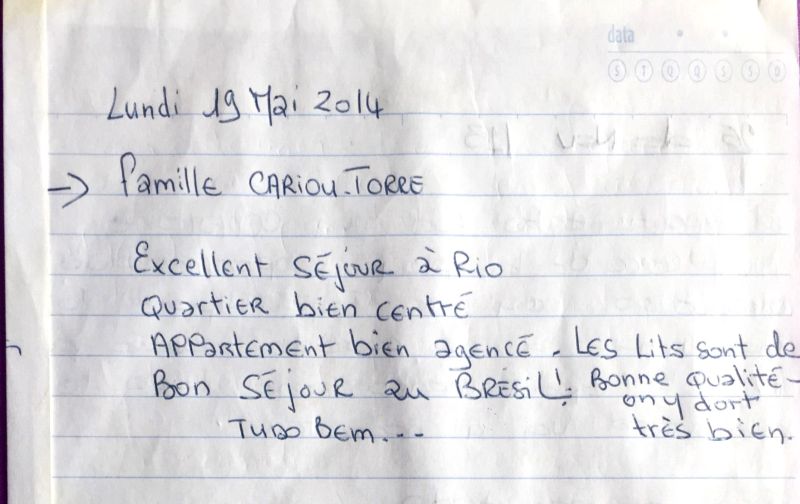 data
S T Q Q S S D
Lundi 19 Mai 2014
→ famille CARIOU-TORRE
Excellent séjour à Rio
Quartier bien centré
Appartement bien agencé. Les lits sont de
Bonne qualité-
on y dort
très bien.
Bon séjour au Brésil!
Tudo Bem...